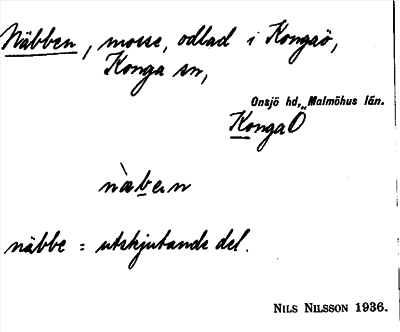 Näbben, mosse, odlad i Kongaö,
Konga sn,
Onsjö hd, Malmöhus län.
Konga Ö
nàben
näbbe = utskjutande del.
NILS NILSSON 1936.